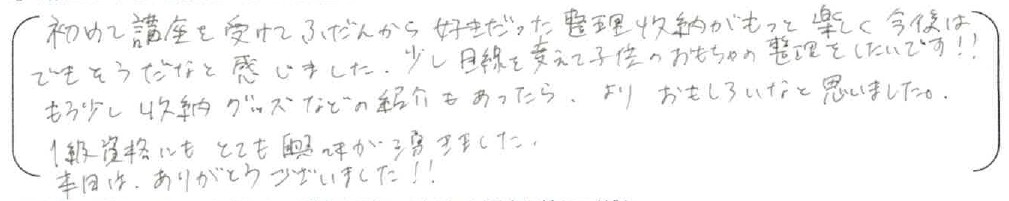 初めて講座を受けてふだんから好きだった整理収納がもっと楽しく今後は
できそうだなと感じました。少し目線を変えて子供のおもちゃの整理をしたいです!!
もう少し収納グッズなどの紹介もあったら、よりおもしろいなと思いました。
1級資格にもとても興味が湧きました。
本日は、ありがとうございました!!